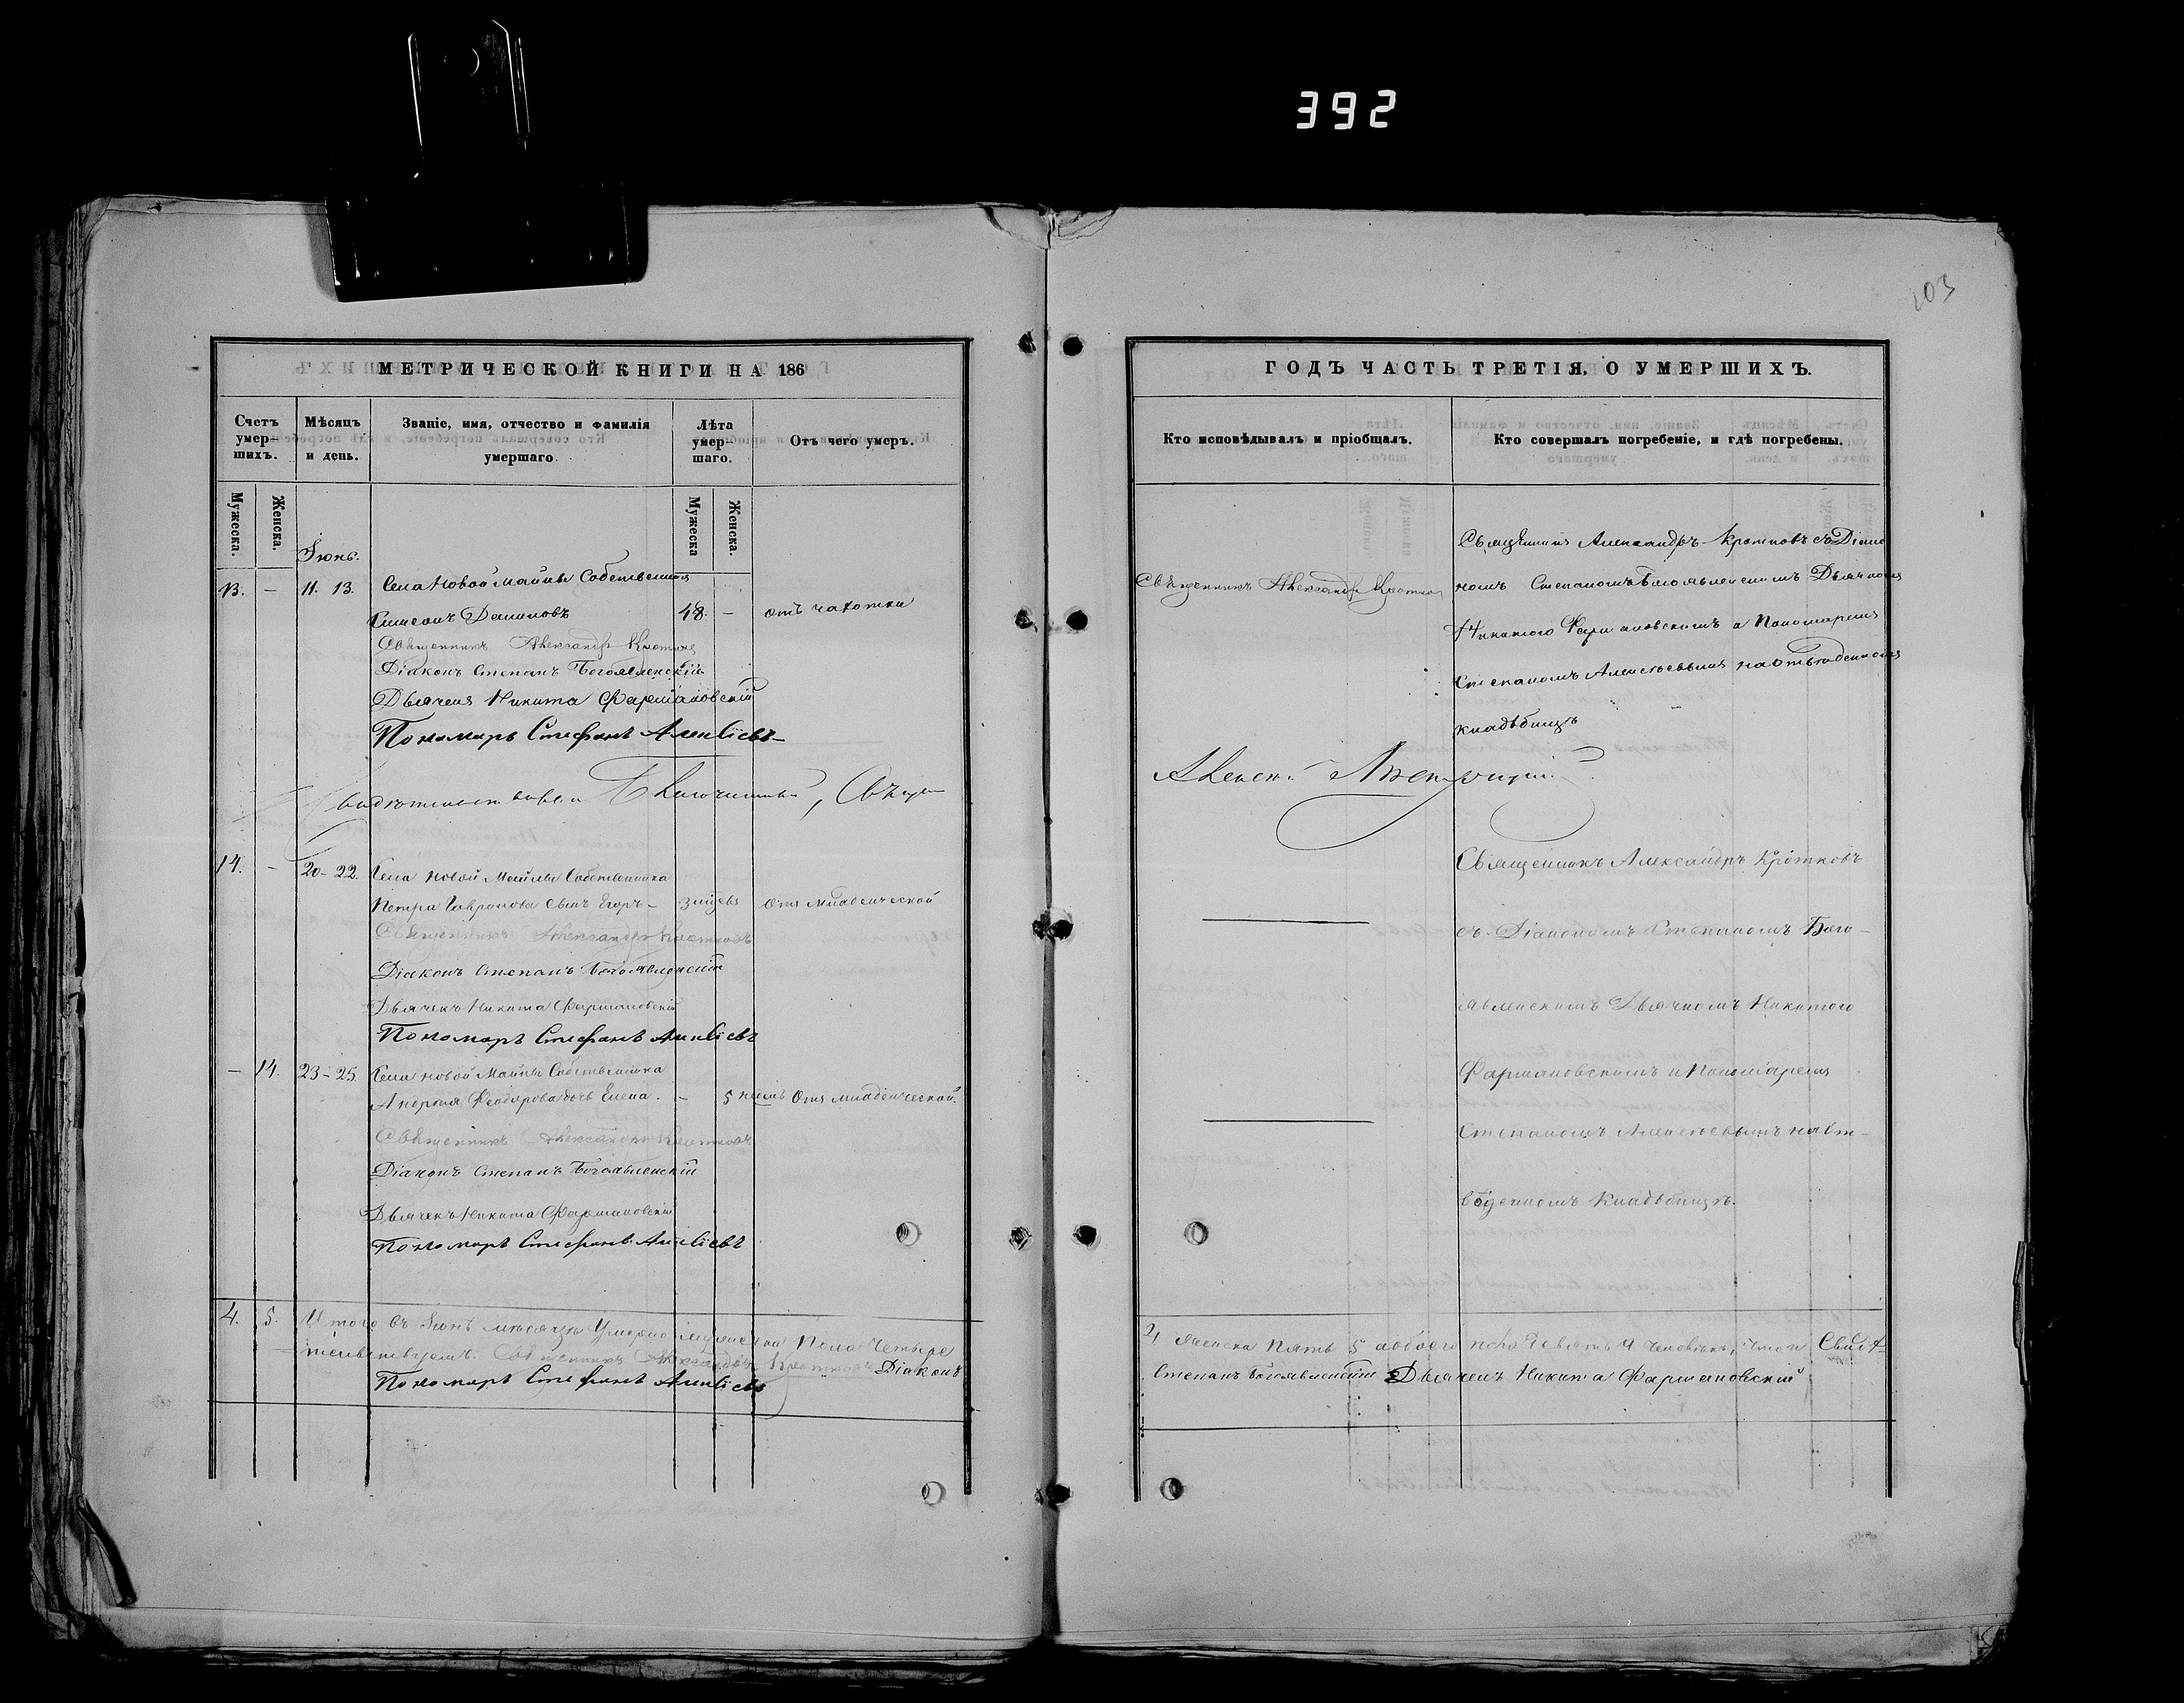 392
103
МЕТРИЧЕСКОЙ КНИГИ НА 186
Счетъ умер-шихъ.
Мѣсяцъ и день.
Званіе, имя, отчество и фамилія умершаго.
Лѣта умер-шаго.
Отъ чего умеръ.
Мужеска.
Женска.
Мужеска
Женска.
Іюнь.
13. — 11. 13. Села Новой Майны Собственникъ
Симеонъ 48. — отъ чахотки
Священникъ Александръ Кротковъ
Діаконъ Степанъ Богоявленскій
Дьячекъ Никита Фармановскій
Пономарь Стефанъ Алексіевъ
14. — 20-22. Села Новой Майны Собственника
Петра Гаврилова сынъ Егоръ — отъ младенческой
Священникъ Александръ Кротковъ
Діаконъ Степанъ Богоявленскій
Дьячекъ Никита Фармановскій
Пономарь Стефанъ Алексіевъ
— 14. 23-25. Села Новой Майны Собственника
Андрея Феодорова дочь Елена. — 5 отъ младенческой.
Священникъ Александръ Кротковъ
Діаконъ Степанъ Богоявленскій
Дьячекъ Никита Фармановскій
Пономарь Стефанъ Алексіевъ
4. 5. Итого въ Іюнѣ мѣсяцѣ Умерло мужеска пола Четыре
тельствуемъ. Священникъ Александръ Кротковъ Діаконъ
Пономарь Стефанъ Алексіевъ
ГОДЪ ЧАСТЬ ТРЕТІЯ, О УМЕРШИХЪ.
Кто исповѣдывалъ и пріобщалъ.
Кто совершалъ погребеніе, и гдѣ погребены.
Священникъ Александръ Кротковъ
Священникъ Александръ Кротковъ съ Діако
номъ Степаномъ Богоявленскимъ Дьячкомъ
Никитою Фармановскимъ и Пономаремъ
Степаномъ Алексѣевымъ на отведенномъ
кладбищѣ
Священникъ Александръ Кротковъ
съ Діакономъ Степаномъ Бого-
явленскимъ Дьячкомъ Никитою
Фармановскимъ и Пономаремъ
Степаномъ Алексѣевымъ на от-
веденномъ Кладбищѣ.
4 женска пять 5 а обоего пола девять 9 человѣкъ, что и Свидѣ-
Степанъ Богоявленскій Дьячекъ Никита Фармановскій